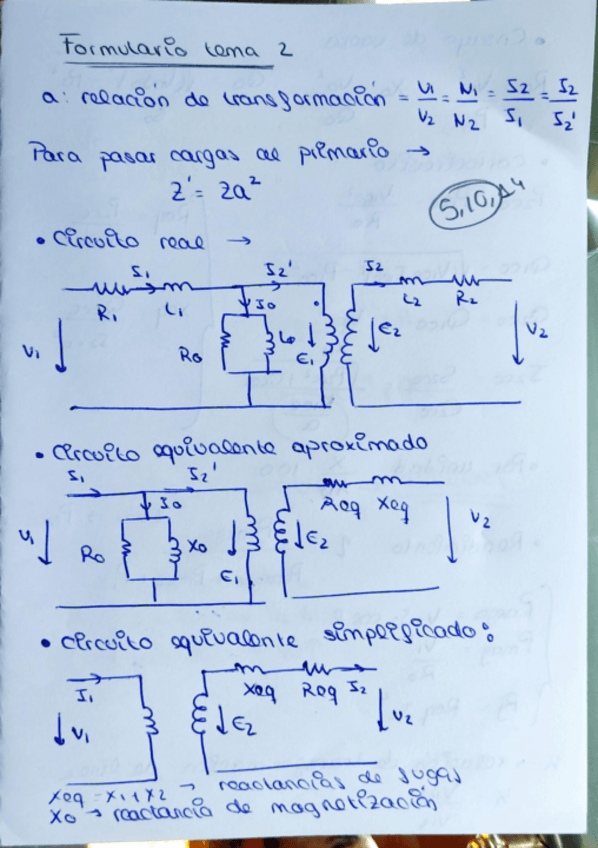 Formulario tema 2
a: relación de transformación = V1/V2 = N1/N2 = I2/I1 = I2/I2'
Para pasar cargas al primario →
Z' = Za²
5,10,14
• Circuito real →
I1 I2' I2
R1 L1 I0 L2 R2
V1 R0 L0 E1 E2 V2
• Circuito equivalente aproximado
I1 I2'
I0 Req Xeq
V1 R0 X0 E1 E2 V2
• Circuito equivalente simplificado:
I1 Xeq Req I2
V1 E2 V2
Xeq = X1 + X2 → reactancias de fugas
X0 → reactancia de magnetización